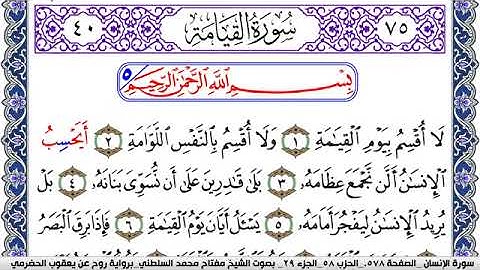 ٧٥ سُورَةُ الْقِيَامَةِ ٤٠
بِسْمِ اللَّهِ الرَّحْمَٰنِ الرَّحِيمِ ٥
لَا أُقْسِمُ بِيَوْمِ الْقِيَٰمَةِ ١ وَلَا أُقْسِمُ بِالنَّفْسِ اللَّوَّامَةِ ٢ أَيَحْسِبُ
الْإِنسَٰنُ أَلَّن نَّجْمَعَ عِظَامَهُۥ ٣ بَلَىٰ قَٰدِرِينَ عَلَىٰ أَن نُّسَوِّيَ بَنَانَهُۥ ٤ بَلْ
يُرِيدُ الْإِنسَٰنُ لِيَفْجُرَ أَمَامَهُۥ ٥ يَسْـَٔلُ أَيَّانَ يَوْمُ الْقِيَٰمَةِ ٦ فَإِذَا بَرِقَ الْبَصَرُ
سورة الإنسان _الصفحة ٥٧٨_ الحزب ٥٨_ الجزء ٢٩_ بصوت الشيخ مفتاح محمد السلطني_برواية روح عن يعقوب الحضرمي